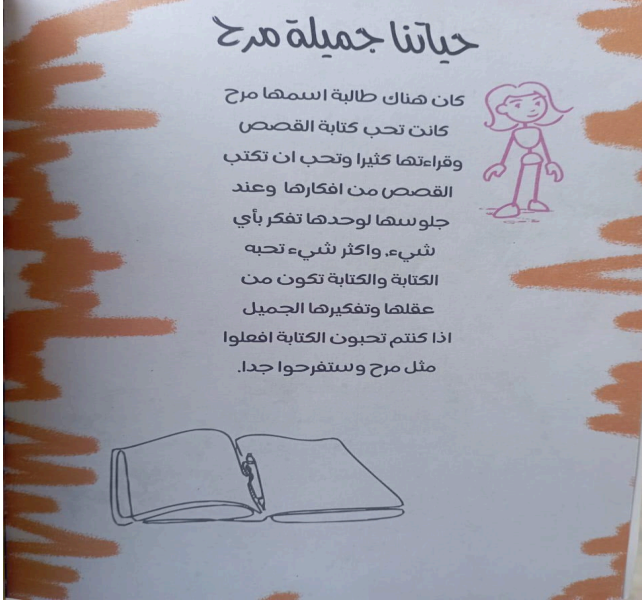 حياتنا جميلة مرح
كان هناك طالبة اسمها مرح
كانت تحب كتابة القصص
وقراءتها كثيرا وتحب ان تكتب
القصص من افكارها وعند
جلوسها لوحدها تفكر بأي
شيء، واكثر شيء تحبه
الكتابة والكتابة تكون من
عقلها وتفكيرها الجميل
اذا كنتم تحبون الكتابة افعلوا
مثل مرح وستفرحوا جدا.